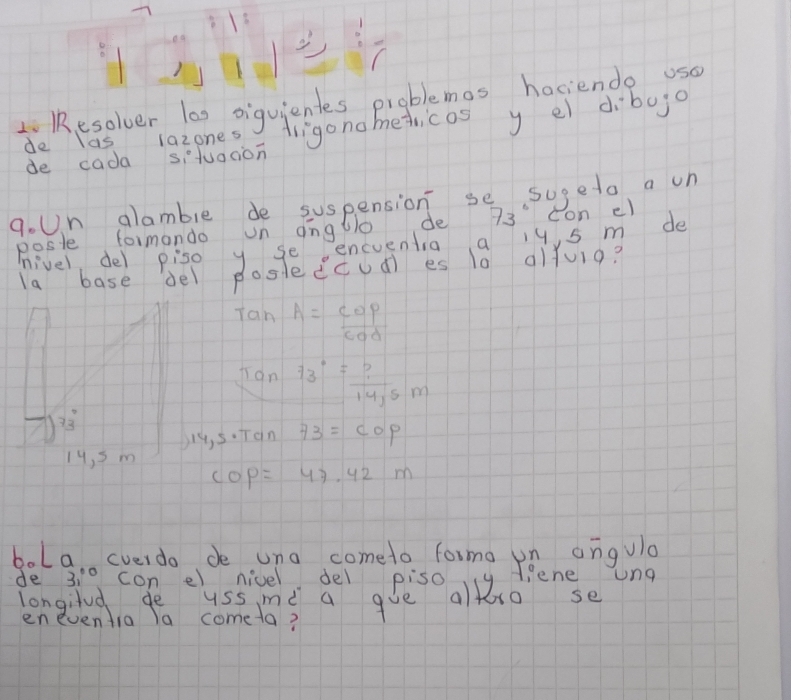 Taller
1. Resolver las siguientes problemas haciendo uso
de las razones trigonometricas y el dibujo
de cada situación
a. Un alambre de suspension se sugeta a un
poste formando un angulo de 73° con el
nivel del piso y se encuentra a 14,5 m de
la base del poste ¿cual es la altura?
Tan A = cop
cad
Tan 73° = ?
14,5 m
73°
14,5 m
14,5 . Tan 73 = cop
cop = 47.42 m
b. La cuerda de una cometa forma un angulo
de con el nivel del piso y tiene una
longitud de 455 m ¿ a que altura se
encuentra la cometa?